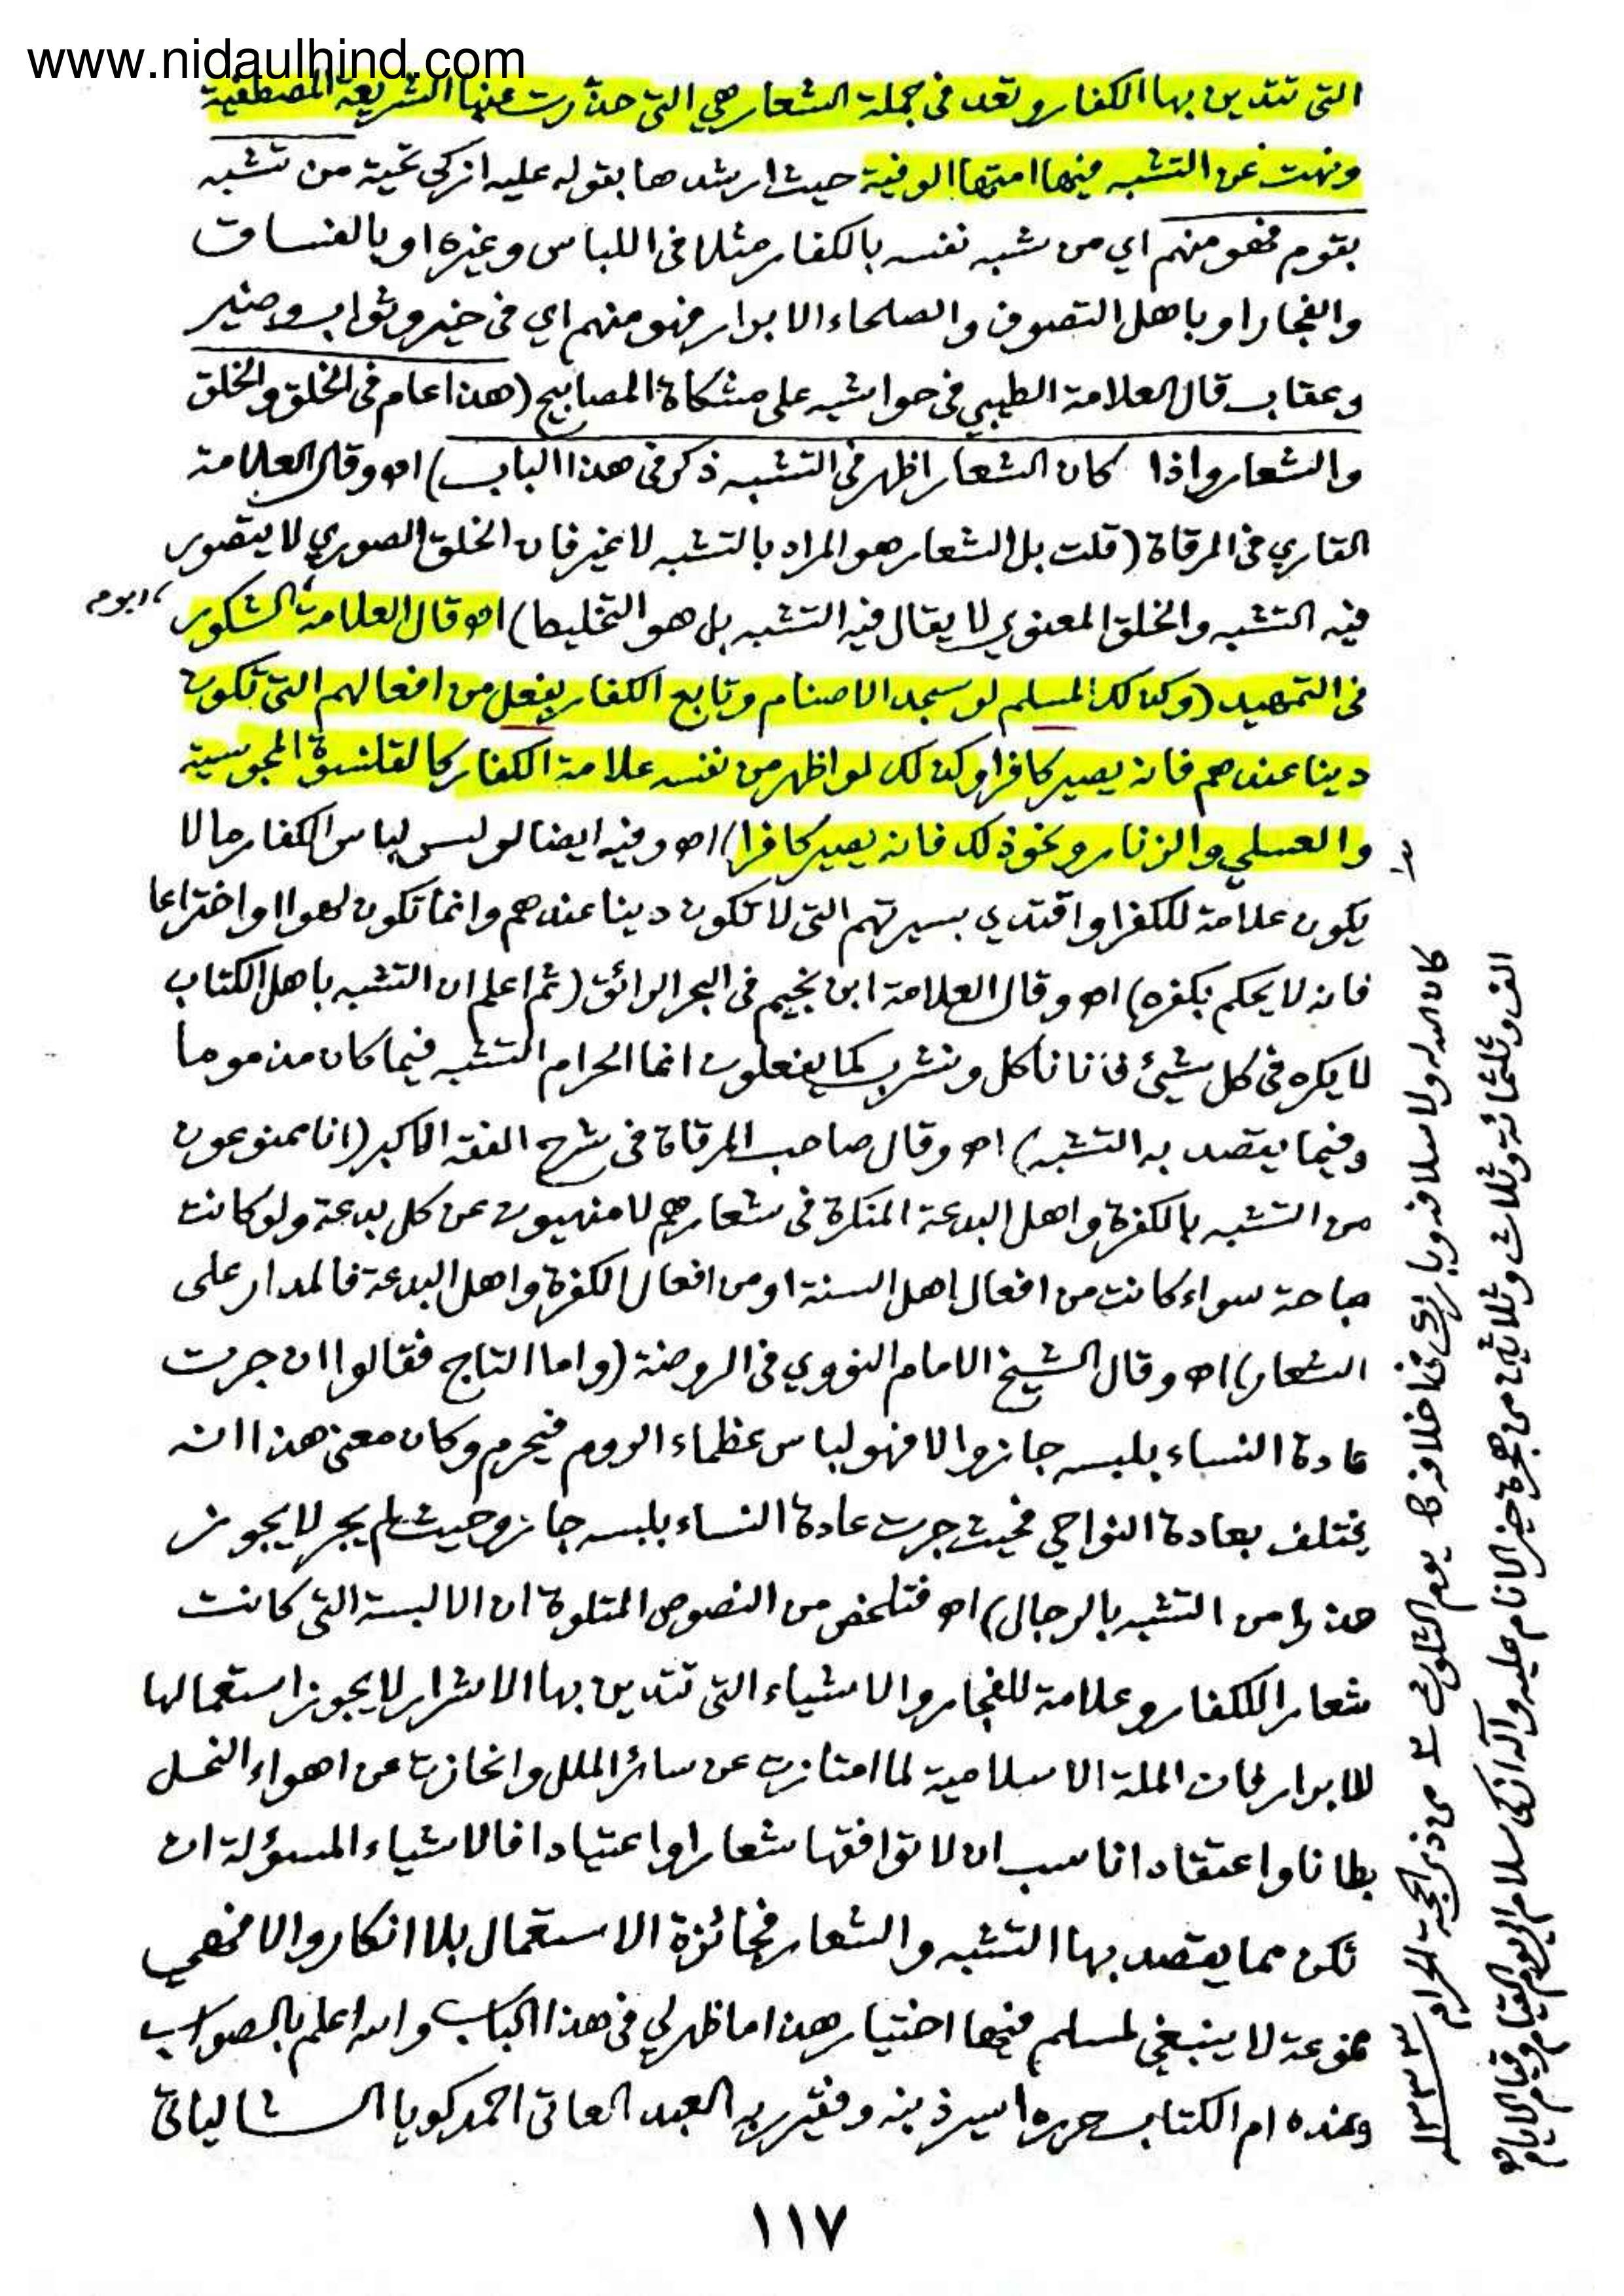 www.nidaulhind.com
التى تتدين بها الكفار وتعد فى جملة الشعار هي التى حذرت عنها الشريعة المصطفية
ونهت عن التشبه فيها امتها الوفية حيث ارشدها بقوله عليه ازكى تحية من تشبه
بقوم فهو منهم اي من شبه نفسه بالكفار مثلا فى اللباس وغيره او بالفساق
والفجار او باهل التصوف والصلحاء الابرار فهو منهم اي فى خير وثواب وضير
وعقاب قال العلامة الطيبي فى حواشيه على مشكاة المصابيح (هذا عام فى الخلق والخلق
والشعار واذا كان الشعار اظهر فى التشبه ذكر فى هذا الباب) اه وقال العلامة
القاري فى المرقاة (قلت بل الشعار هو المراد بالتشبه لا غير فان الخلق الصوري لا يتصور
فيه التشبه والخلق المعنوي لا يقال فيه التشبه بل هو التخلط) اه قال العلامة الشكور
فى التمهيد (وكذلك المسلم لو سجد الاصنام وتابع الكفار بفعل من افعالهم التى تكون
دينا عندهم فانه يصير كافرا وكذلك لو اظهر من نفسه علامة الكفار كالقلنسوة المجوسية
والعسلي والزنار ونحو ذلك فانه يصير كافرا) اه وفيه ايضا لو لبس لباس الكفار مالا
يكون علامة للكفر او اقتدي بسيرتهم التى لا تكون دينا عندهم وانما تكون لهوا او اختراعا
فانه لا يحكم بكفره) اه وقال العلامة ابن نجيم فى البحر الرائق (ثم اعلم ان التشبه باهل الكتاب
لا يكره فى كل شيئ فاننا نأكل ونشرب كما يفعلون انما الحرام التشبه فيما كان مذموما
وفيما يقصد به التشبه) اه وقال صاحب المرقاة فى شرح الفقه الاكبر (انا ممنوعون
من التشبه بالكفرة واهل البدعة المنكرة فى شعارهم لا منهيون عن كل بدعة ولو كانت
مباحة سواء كانت من افعال اهل السنة او من افعال الكفرة واهل البدعة فالمدار على
الشعار) اه وقال الشيخ الامام النووي فى الروضة (واما التاج فقالوا ان جرت
عادة النساء بلبسه جاز والا فهو لباس عظماء الروم فيحرم وكان معنى هذا انه
يختلف بعادة النواحي فحيث جرت عادة النساء بلبسه جاز وحيث لم يجر لا يجوز
حذرا من التشبه بالرجال) اه فتلخص من النصوص المتلوة ان الالبسة التى كانت
شعارا للكفار وعلامة للفجار والاشياء التى تتدين بها الاشرار لا يجوز استعمالها
للابرار فان الملة الاسلامية لما امتازت عن سائر الملل وانحازت عن اهواء النحل
بطانا واعتقادا ناسب ان لا توافقها شعارا واعتيادا فالاشياء المسؤلة ان
تكن مما يقصد بها التشبه والشعار فجائزة الاستعمال بلا انكار والا فهي
ممنوعة لا ينبغي لمسلم فيها اختيار هذا ما ظهر لي فى هذا الباب والله اعلم بالصواب
وعنده ام الكتاب حرره اسير ذنبه وفقير ربه العبد العاتى احمد كويا الشالياتى
كان الله له ولاسلافه وبارك فى اخلافه يوم الثلوث من ذي الحجة الحرام ١٣٣٣
الف وثلثمائة وثلاث وثلاثين من هجرة خير الانام عليه وآله ازكى سلام الى يوم القيام
١١٧